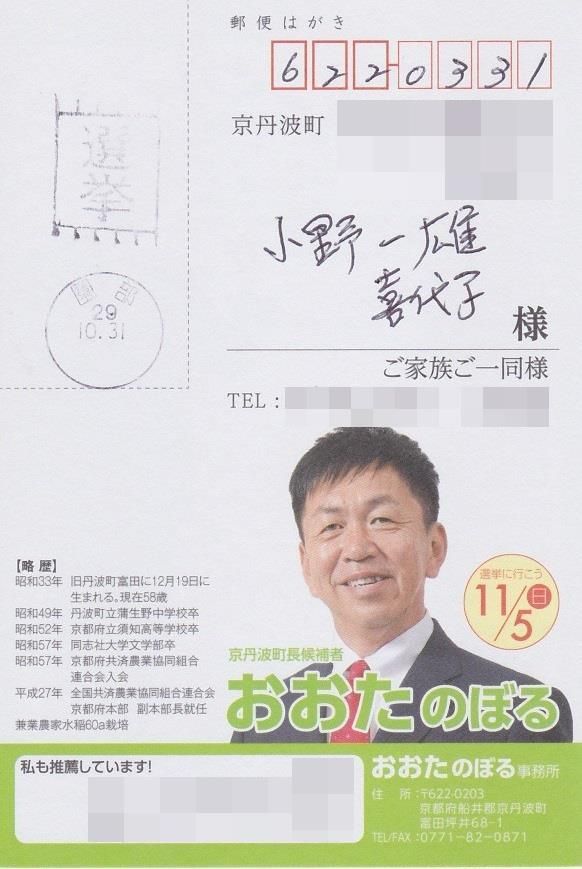 郵便はがき
622-0331
京丹波町
選挙
園部
29
10.31
小野 一雄
喜代子
様
ご家族ご一同様
TEL：
【略 歴】
昭和33年 旧丹波町富田に12月19日に
生まれる。現在58歳
昭和49年 丹波町立蒲生野中学校卒
昭和52年 京都府立須知高等学校卒
昭和57年 同志社大学文学部卒
昭和57年 京都府共済農業協同組合
連合会入会
平成27年 全国共済農業協同組合連合会
京都府本部 副本部長就任
兼業農家水稲60a栽培
選挙に行こう
11/5 日
京丹波町長候補者
おおたのぼる
私も推薦しています!
おおたのぼる事務所
住 所：〒622-0203
京都府船井郡京丹波町
富田坪井68-1
TEL/FAX：0771-82-0871